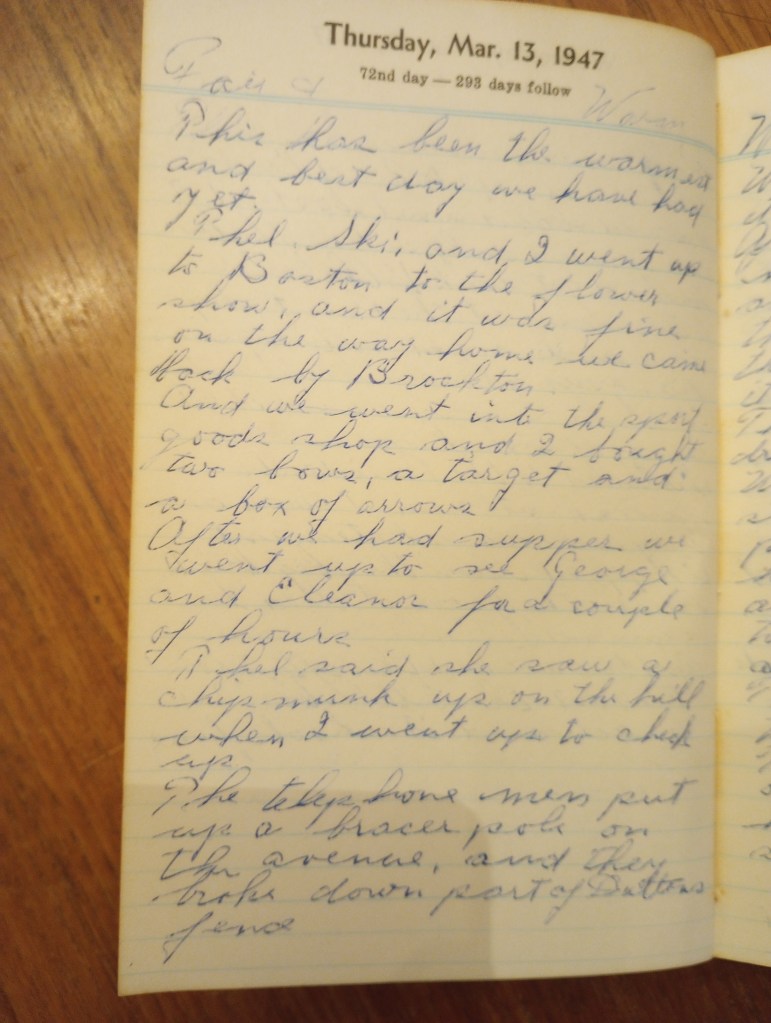 Thursday, Mar. 13, 1947
72nd day — 293 days follow
Fair & Warm
This has been the warmest
and best day we have had
yet.
Thel. Ski, and I went up
to Boston to the flower
show, and it was fine
on the way home we came
back by Brockton
And we went into the sport
goods shop and I bought
two bows, a target and
a box of arrows
After we had supper we
went up to see George
and Eleanor for a couple
of hours
Thel said she saw a
chipmunk up on the hill
when I went up to check
up
The telephone men put
up a bracer pole on
the avenue, and they
broke down part of Duttons
fence